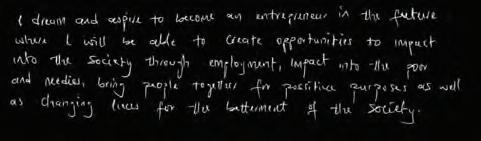 I dream and aspire to become an entrepreneur in the future
where I will be able to create opportunities to impact
into the society through employment, impact into the poor
and needies, bring people together for positive purposes as well
as changing lives for the betterment of the society.